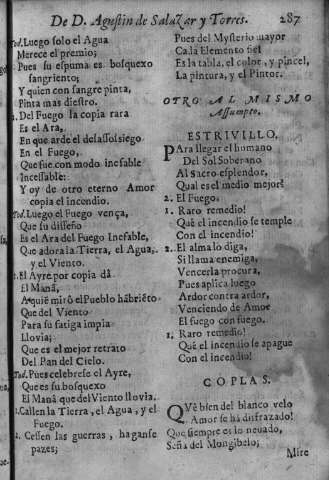 De D. Agustin de Salazar y Torres. 287
Tod. Luego solo el Agua
Merece el premio;
Pues su espuma es bosquexo
sangriento;
Y quien con sangre pinta,
Pinta mas diestro.
2. Del Fuego la copia rara
Es el Ara,
En que arde el desassossiego
En el Fuego,
Que fue con modo inefable
Incessable:
Y oy de otro eterno Amor
copia el incendio.
Tod. Luego el Fuego vença,
Que su disseño
Es el Ara del Fuego Inefable,
Que adora la Tierra, el Agua,
y el Viento.
2. El Ayre por copia dà
El Manà,
Aquiè mirò el Pueblo hãbriēto
Que del Viento
Para su fatiga impia
Llovia;
Que es el mejor retrato
Del Pan del Cielo.
Tod. Pues celebrese el Ayre,
Que es su bosquexo
El Manà que del Viento llovia.
1. Callen la Tierra, el Agua, y el
Fuego.
2. Cessen las guerras, haganse
pazes;
Pues del Mysterio mayor
Cada Elemento fiel
Es la tabla, el color, y pincel,
La pintura, y el Pintor.
OTRO AL MISMO
Assumpto.
ESTRIVILLO.
PAra llegar el humano
Del Sol Soberano
Al Sacro esplendor,
Qual es el medio mejor?
2. El Fuego.
1. Raro remedio!
Què el incendio se temple
Con el incendio!
2. El alma lo diga,
Si llama enemiga,
Vencerla procura,
Pues aplica luego
Ardor contra ardor,
Venciendo de Amor
El fuego con fuego.
1. Raro remedio!
Què el incendio se apague
Con el incendio!
COPLAS.
QVè bien del blanco velo
Amor se ha disfrazado!
Que siempre es lo nevado,
Seña del Mongibelo;
Mire